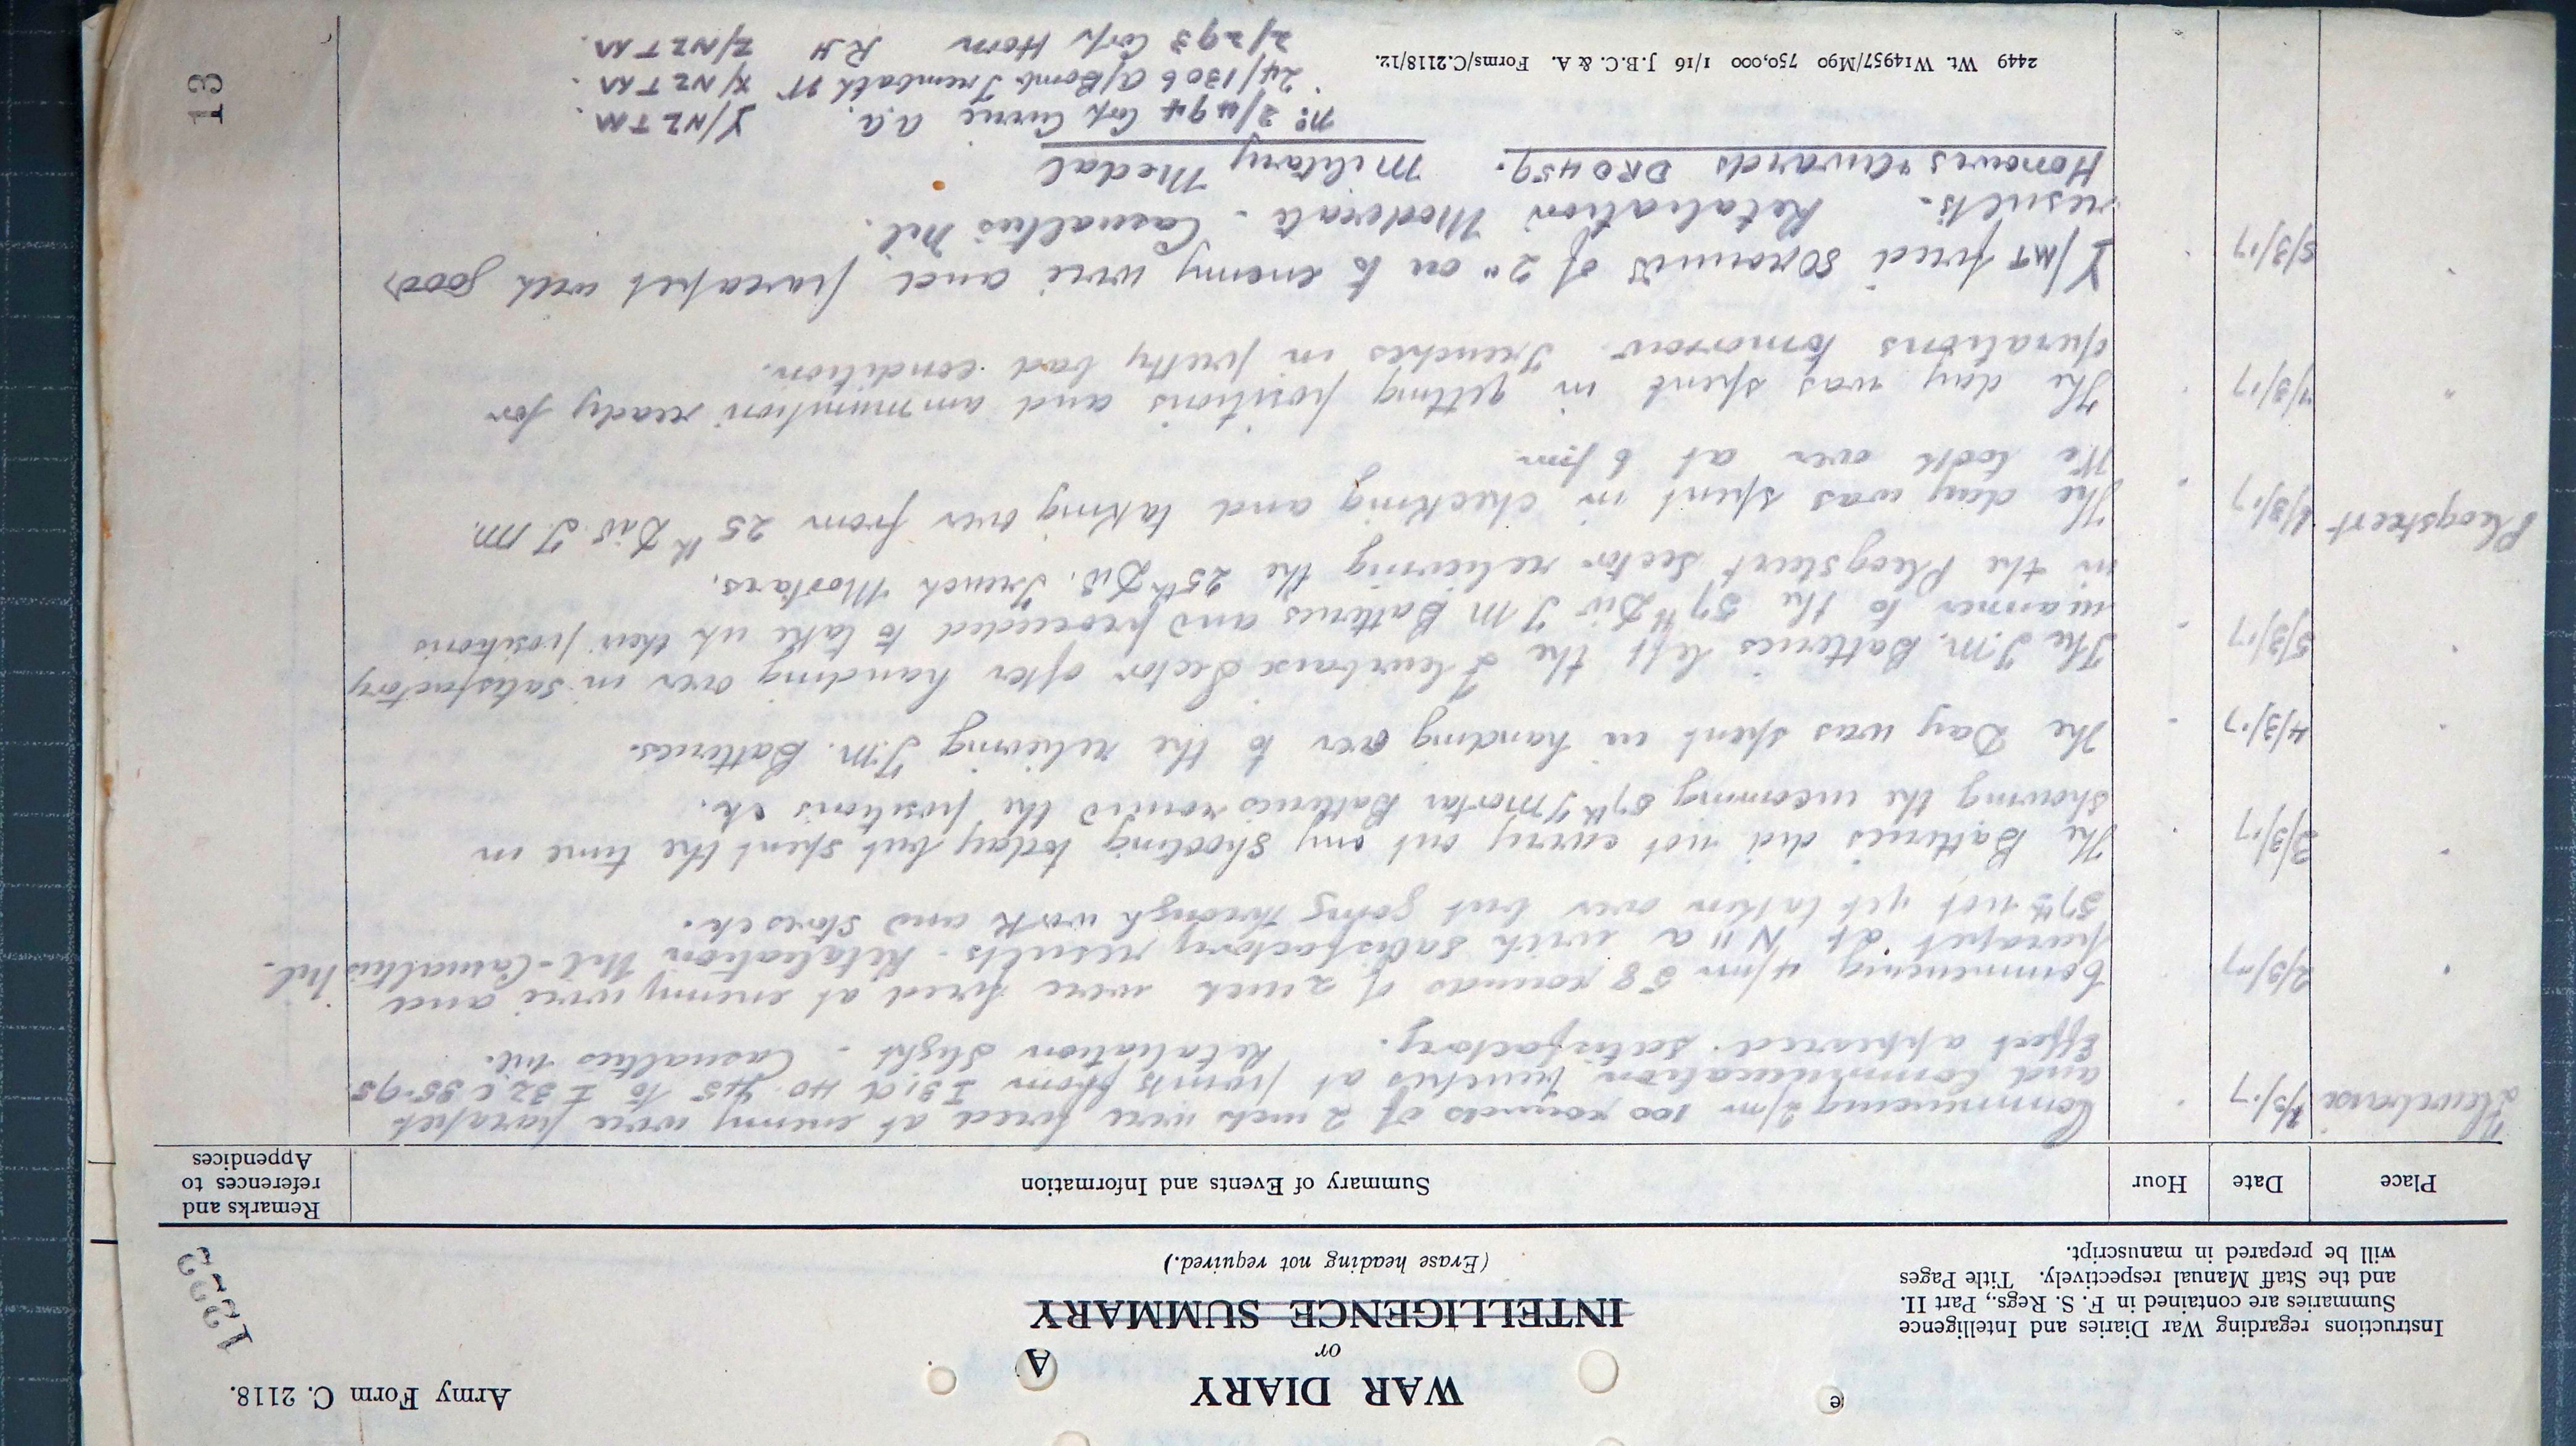 Army Form C. 2118.
WAR DIARY
or
INTELLIGENCE SUMMARY
(Erase heading not required.)
Instructions regarding War Diaries and Intelligence
Summaries are contained in F. S. Regs., Part II.
and the Staff Manual respectively. Title Pages
will be prepared in manuscript.
A
e
1222
Place Date Hour Summary of Events and Information Remarks and references to Appendices
Fleurbaix 1/3/17 Commencing 2/pm 100 rounds of 2 inch were fired at enemy wire parapet
and Communication trenches at points from I31d 40.45 to I32c 35.95.
Effect appeared satisfactory. Retaliation slight - Casualties nil.
" 2/3/17 Commencing 4/pm 58 rounds of 2 inch were fired at enemy wire and
parapet at N 11 a with satisfactory results. Retaliation Nil - Casualties Nil.
57th not yet taken over but going through work and stores etc.
" 3/3/17 The Batteries did not carry out any shooting today but spent the time in
showing the incoming 57th T Mortar Batteries round the positions etc.
" 4/3/17 The Day was spent in handing over to the relieving T.M. Batteries.
" 5/3/17 The T.M. Batteries left the Fleurbaix Sector after handing over in satisfactory
manner to the 57th Div T M Batteries and proceeded to take up their positions
in the Plogsteert Sector relieving the 25th Div. Trench Mortars.
Plogsteert 6/3/17 The day was spent in checking and taking over from 25th Div. T.M.
We took over at 6 pm
" 7/3/17 The day was spent in getting positions and ammunition ready for
operations tomorrow. Trenches in pretty bad condition.
" 8/3/17 Y/MT fired 50 rounds of 2" on to enemy wire and parapet with good
results. Retaliation Moderate - Casualties Nil.
Honours & Awards DRO 459. Military Medal
No 2/494 Cpl Currie A.A. Y/NZTM.
24/1306 A/Bomb. Trembath X/NZTM.
2/293 Corp Horn R H Z/NZTM.
2449 Wt. W14957/M90 750,000 1/16 J.B.C. & A. Forms/C.2118/12.
13